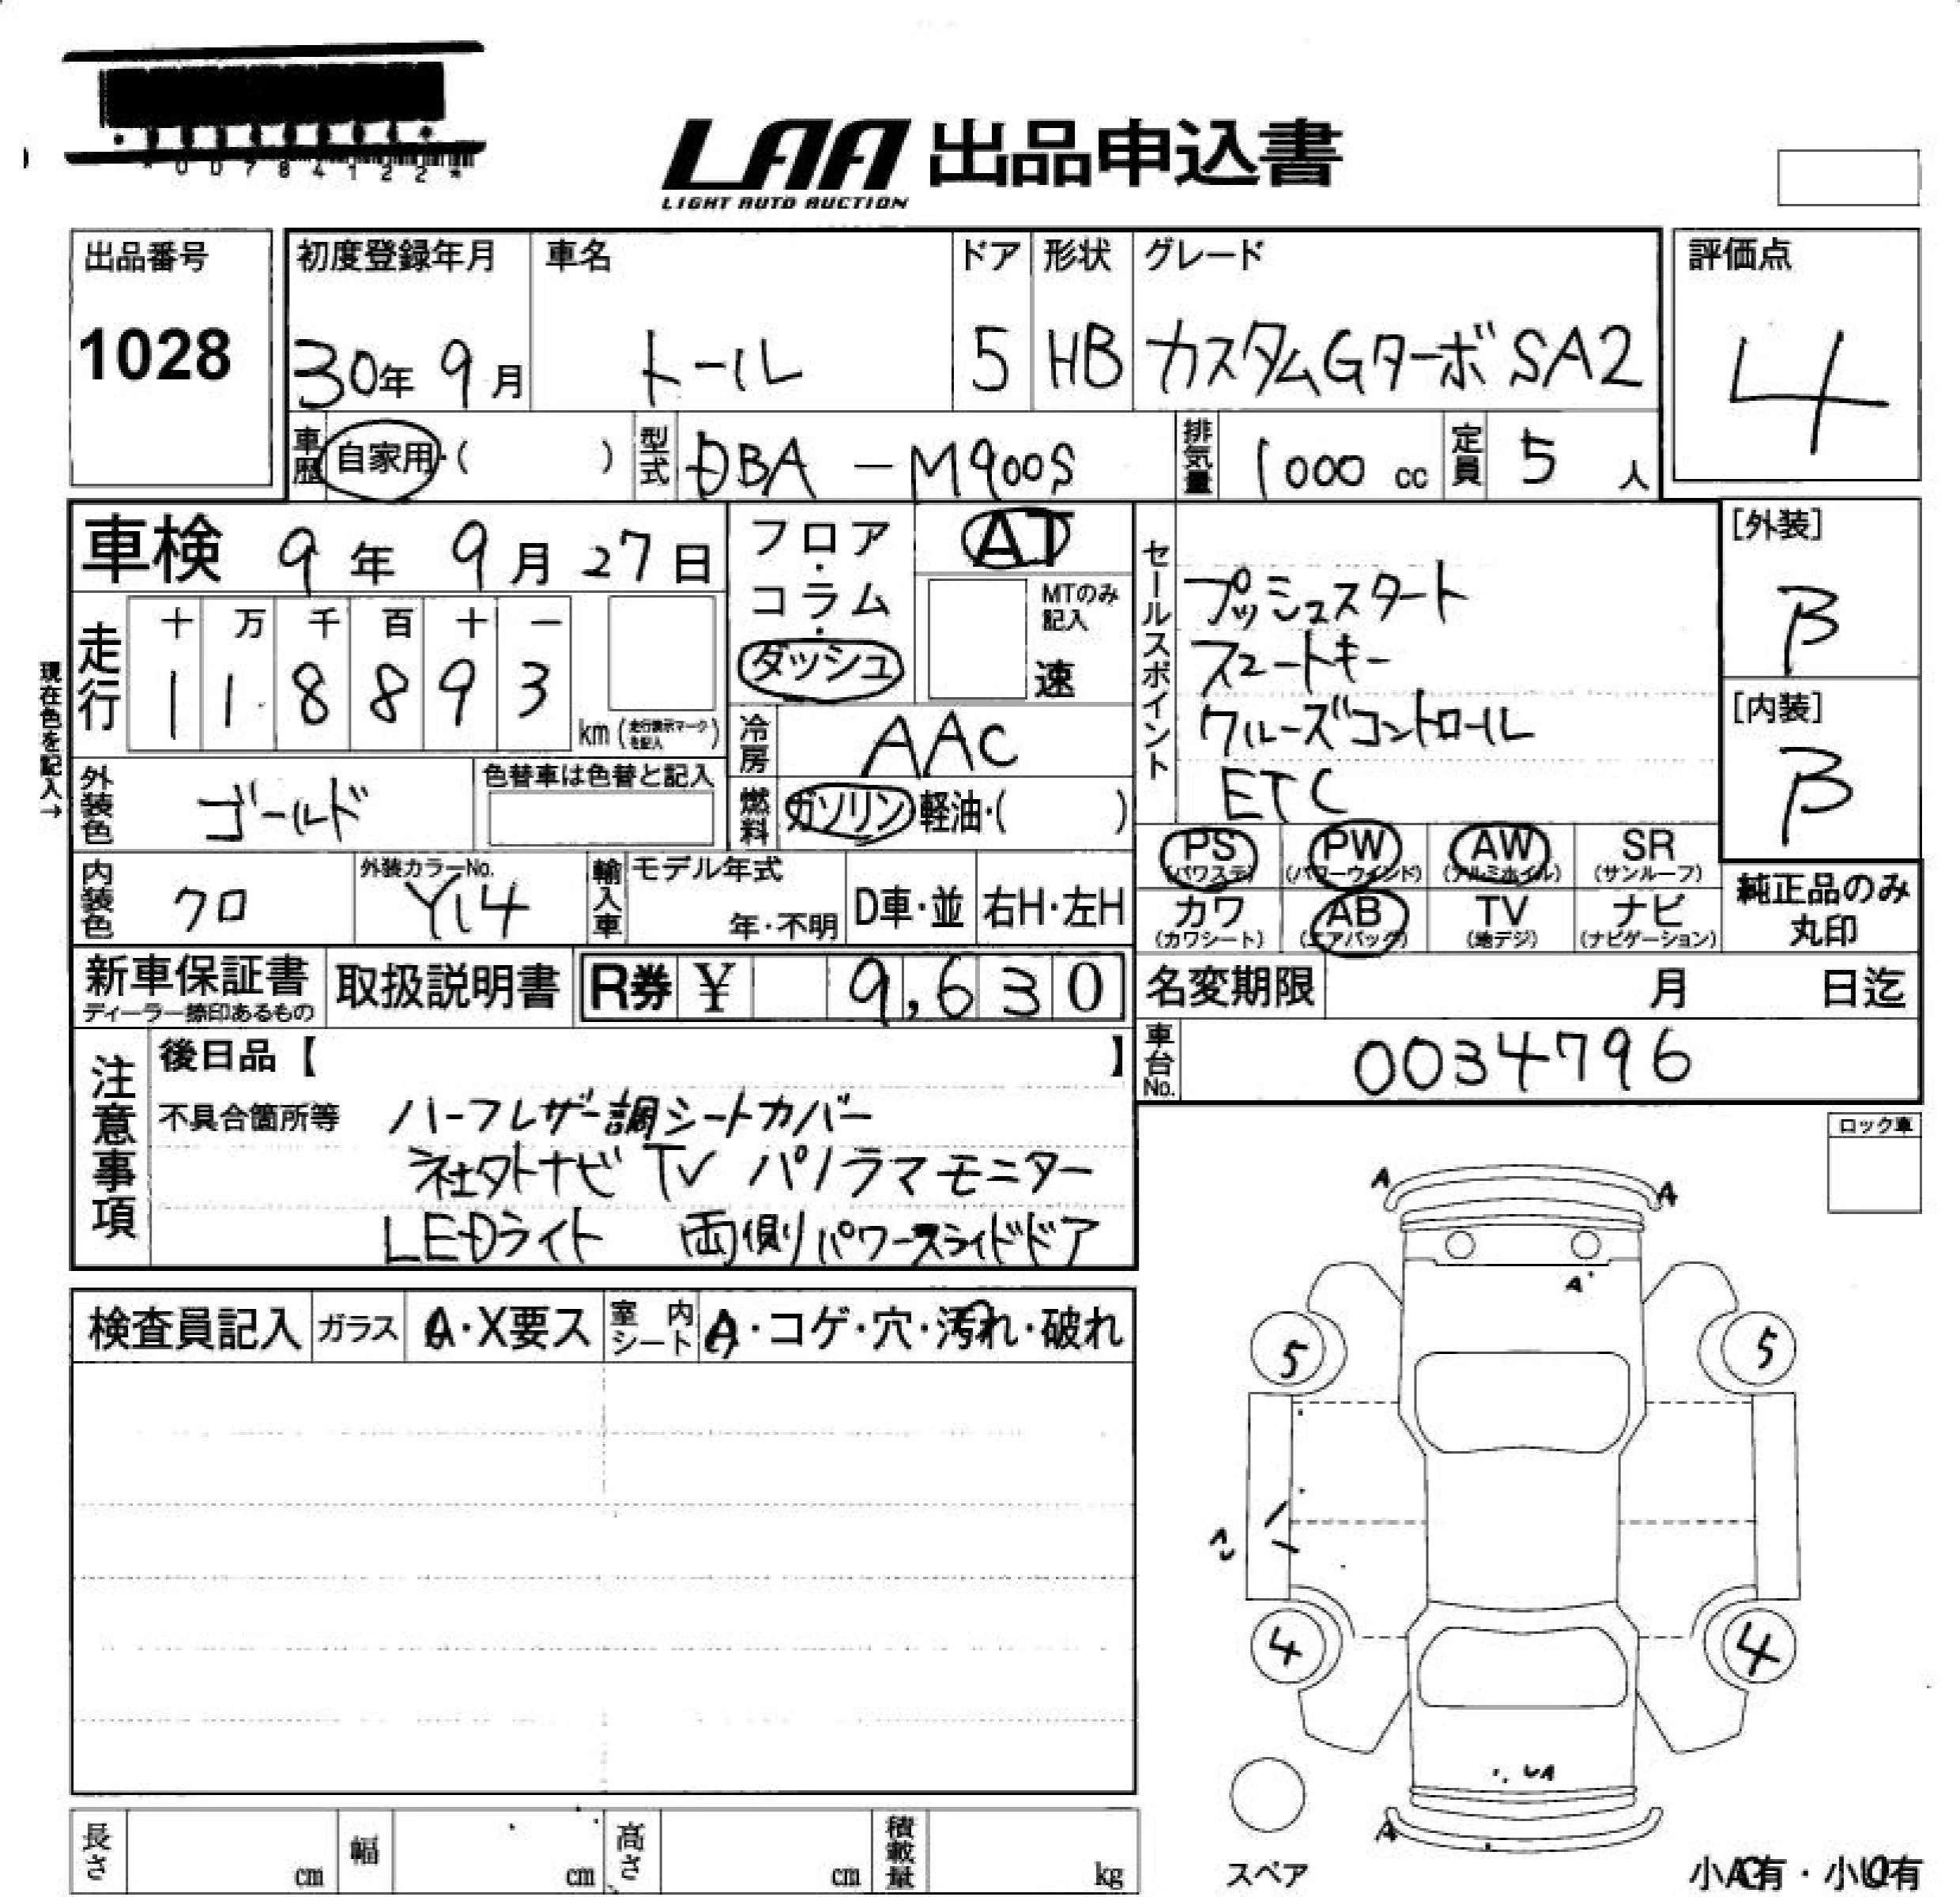 *00784122*
LAA 出品申込書
LIGHT AUTO AUCTION
出品番号
1028
初度登録年月
30年 9月
車名
トール
ドア
5
形状
HB
グレード
カスタムGターボSA2
評価点
4
車歴 自家用・( )
型式 DBA-M900S
排気量 1000 cc
定員 5 人
車検 9年 9月 27日
フロア・コラム・ダッシュ
AT
MTのみ記入
速
現在色を記入→
走行
十 万 千 百 十 一
1 1 8 8 9 3
km(走行表示マークを記入)
冷房 AAC
燃料 ガソリン 軽油・( )
外装色 ゴールド
色替車は色替と記入
内装色 クロ
外装カラーNo.
輸入車
モデル年式
年・不明
D車・並
右H・左H
セールスポイント
プッシュスタート
スマートキー
クルーズコントロール
ETC
[外装]
B
[内装]
B
PS (パワステ)
PW (パワーウインド)
AW (アルミホイル)
SR (サンルーフ)
カワ (カワシート)
AB (エアバック)
TV (地デジ)
ナビ (ナビゲーション)
純正品のみ
丸印
新車保証書
ディーラー捺印あるもの
取扱説明書
R券 ¥ 9,630
名変期限 月 日迄
車台No. 0034796
注意事項
後日品【 】
不具合箇所等 ハーフレザー調シートカバー
社外ナビ TV パノラマモニター
LEDライト 両側パワースライドドア
ロック車
検査員記入
ガラス
A・X要ス
室内シート
A・コゲ・穴・汚れ・破れ
A
A
A
5
5
4
4
UA
A
スペア
長さ cm
幅 cm
高さ cm
積載量 kg
小A有・小U有